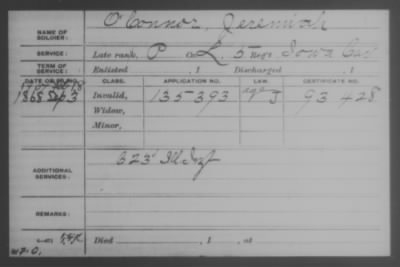 NAME OF SOLDIER: O'Connor, Jeremiah
SERVICE: Late rank, P Co. L, 5 Reg't Iowa Cav
TERM OF SERVICE: Enlisted , 1 Discharged , 1
DATE OF FILING. CLASS. APPLICATION NO. LAW. CERTIFICATE NO.
1868 3 Invalid, 135393 J 93428
Widow,
Minor,
ADDITIONAL SERVICES: C 23" Ill Inf
REMARKS:
Died , 1 , at